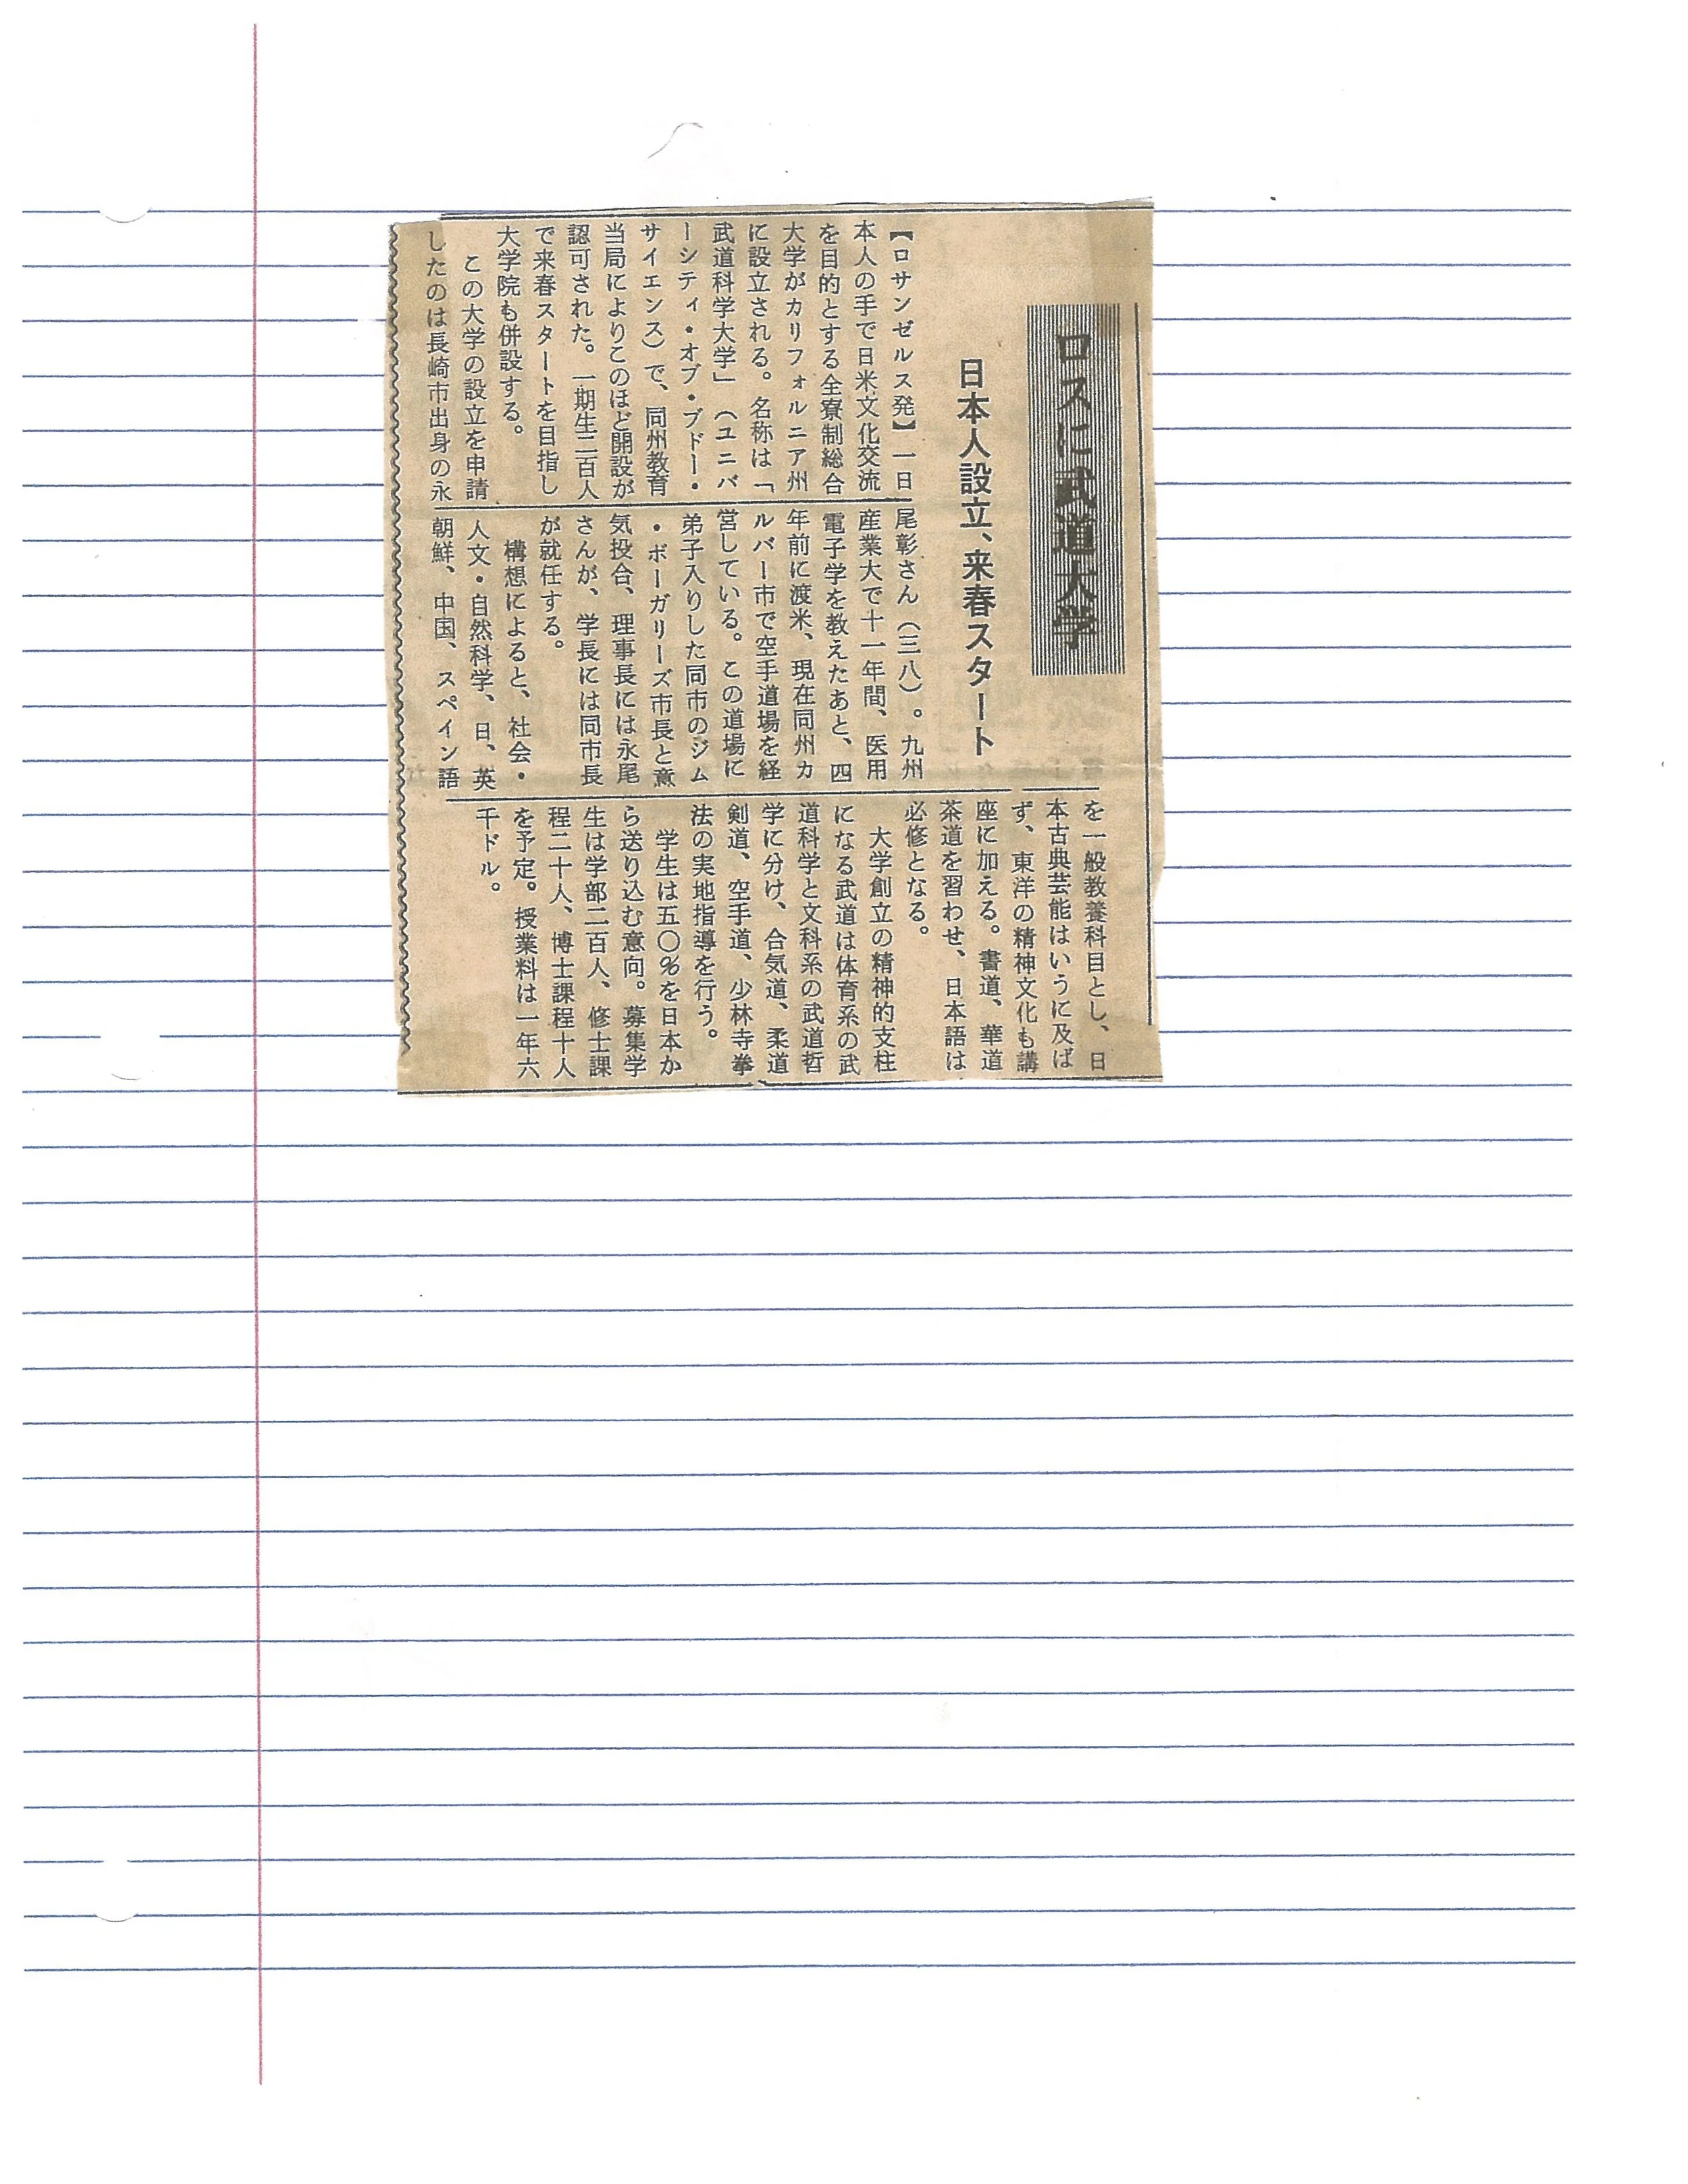 ロスに武道大学
日本人設立、来春スタート
【ロサンゼルス発】一日
本人の手で日米文化交流
を目的とする全寮制総合
大学がカリフォルニア州
に設立される。名称は「
武道科学大学」（ユニバ
ーシティ・オブ・ブドー・
サイエンス）で、同州教育
当局によりこのほど開設が
認可された。一期生二百人
で来春スタートを目指し
大学院も併設する。
この大学の設立を申請
したのは長崎市出身の永
尾彰さん（三八）。九州
産業大で十一年間、医用
電子学を教えたあと、四
年前に渡米、現在同州カ
ルバー市で空手道場を経
営している。この道場に
弟子入りした同市のジム
・ボーガリーズ市長と意
気投合、理事長には永尾
さんが、学長には同市長
が就任する。
構想によると、社会・
人文・自然科学、日、英
朝鮮、中国、スペイン語
を一般教養科目とし、日
本古典芸能はいうに及ば
ず、東洋の精神文化も講
座に加える。書道、華道
茶道を習わせ、日本語は
必修となる。
大学創立の精神的支柱
になる武道は体育系の武
道科学と文科系の武道哲
学に分け、合気道、柔道
剣道、空手道、少林寺拳
法の実地指導を行う。
学生は五〇％を日本か
ら送り込む意向。募集学
生は学部二百人、修士課
程二十人、博士課程十人
を予定。授業料は一年六
千ドル。